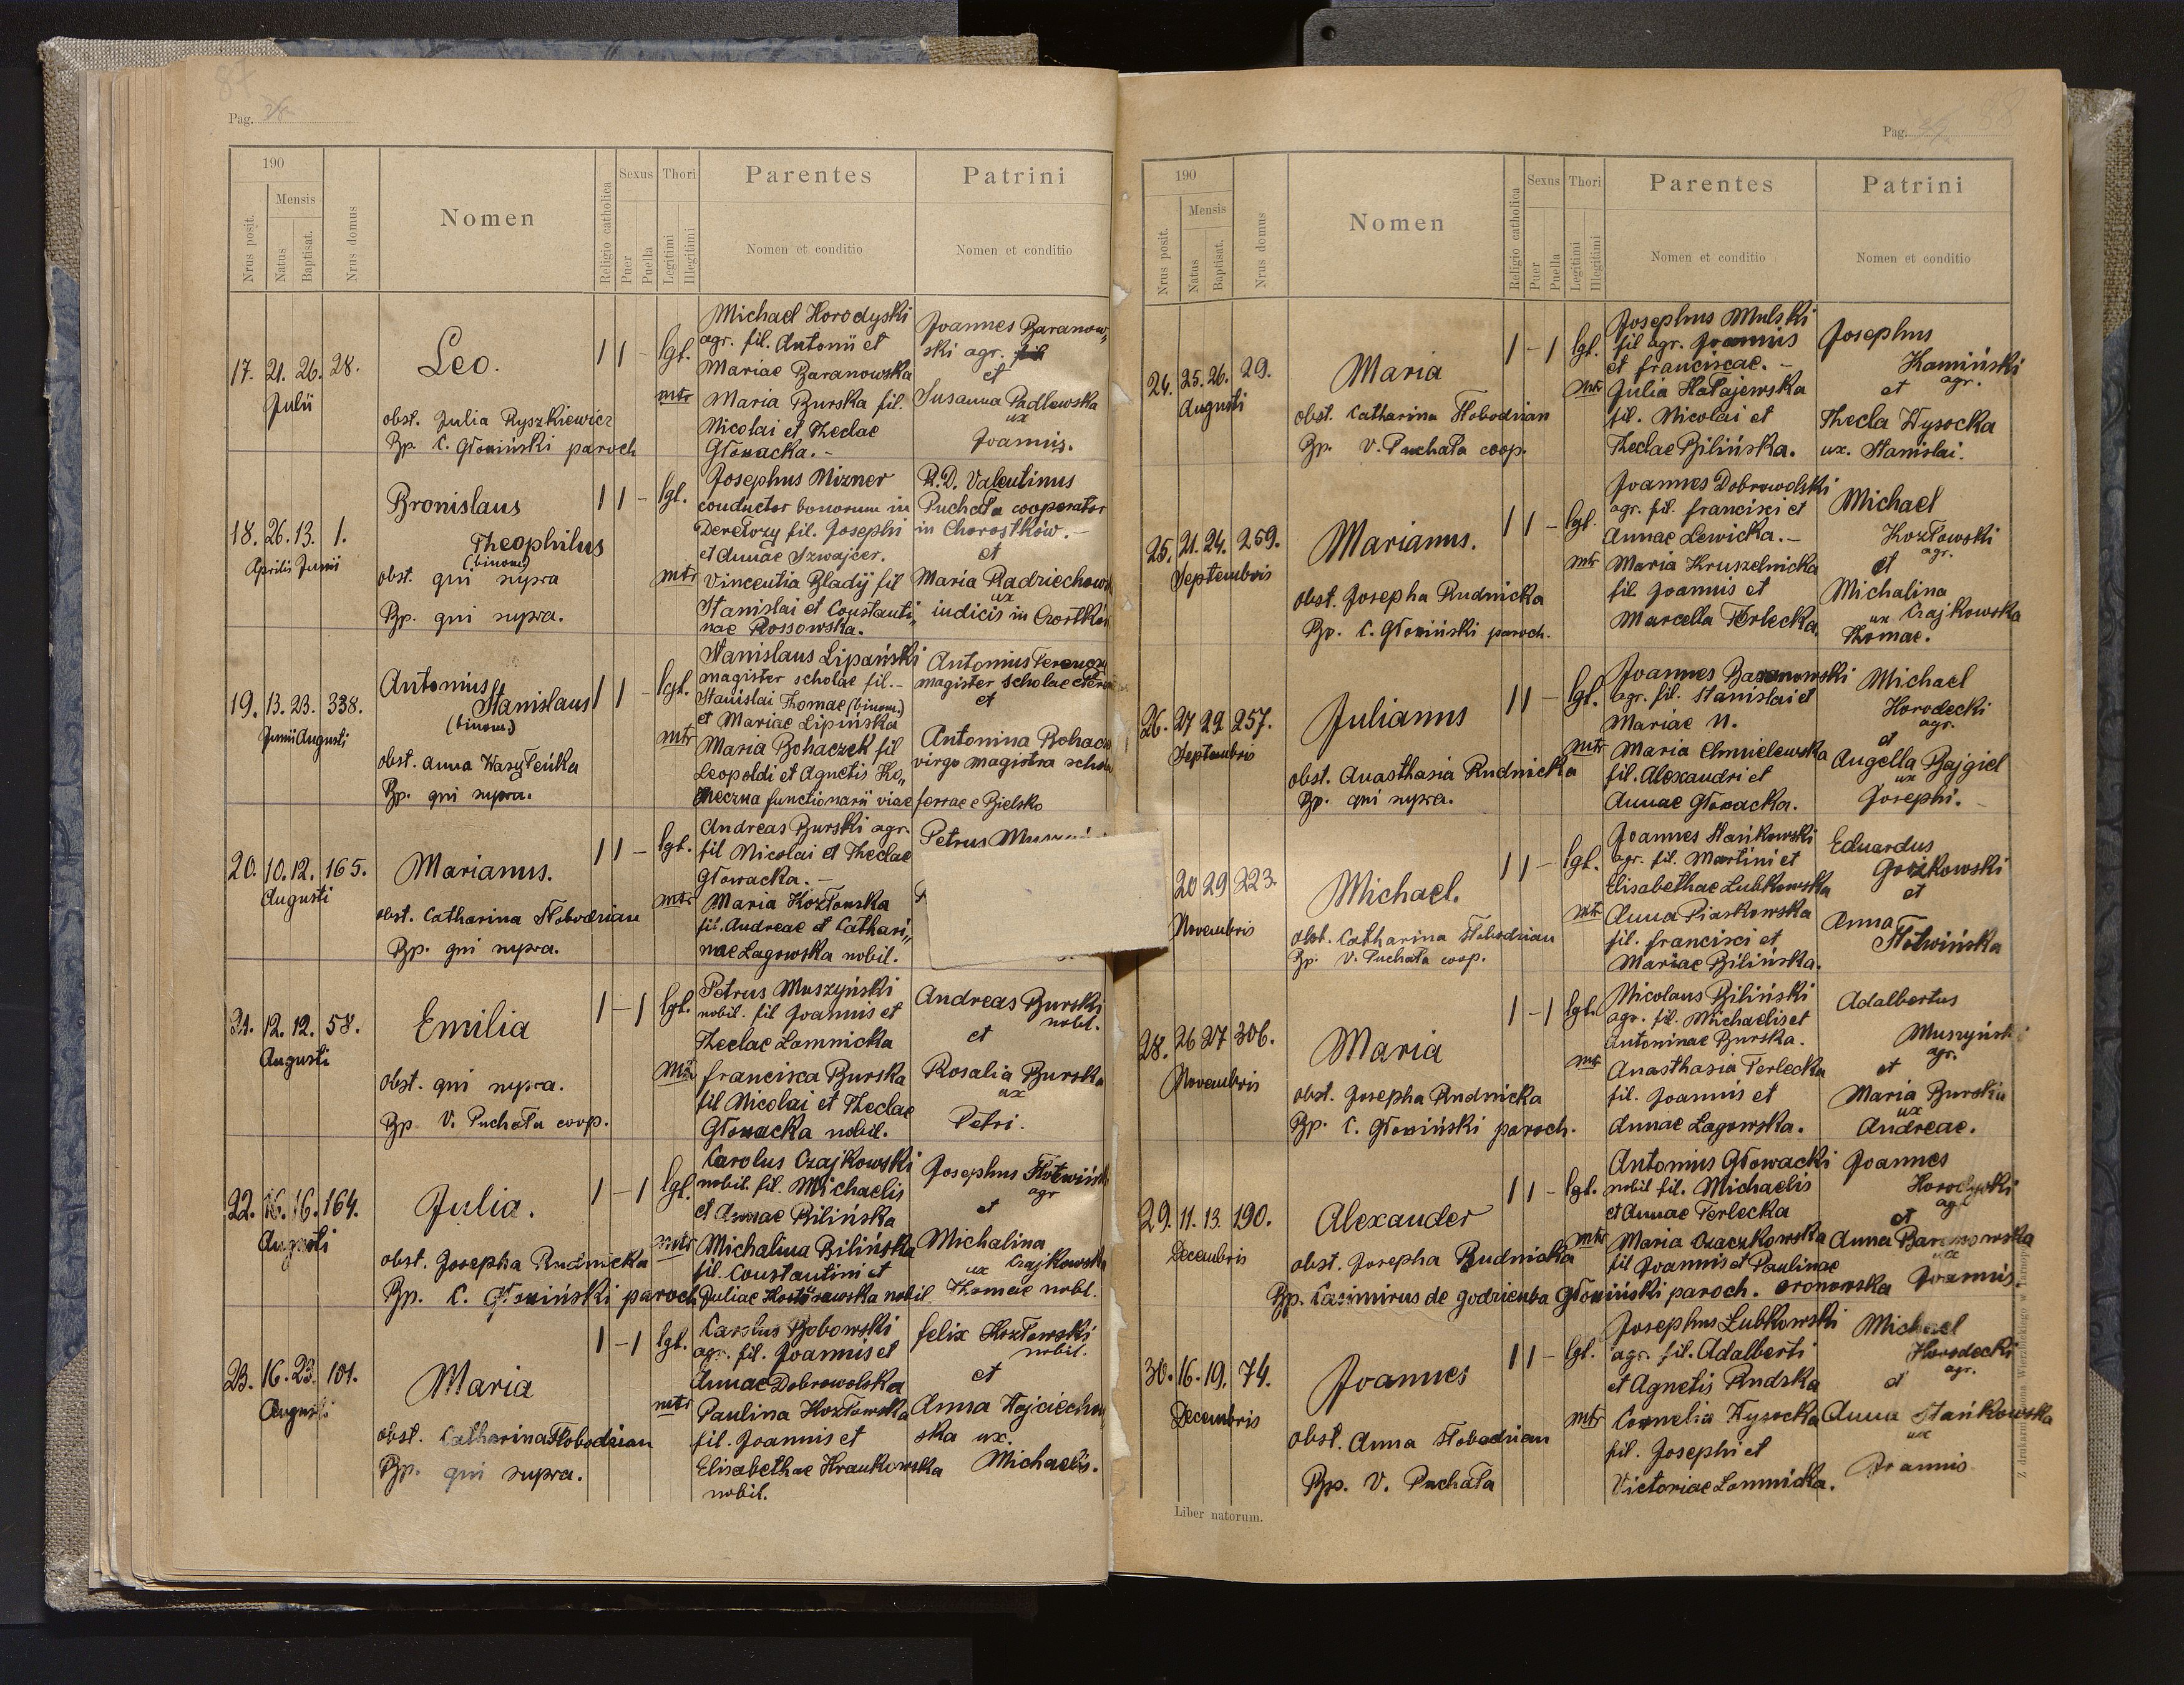 Pag.
190
Mensis
Nrus posit.
Natus
Baptisat.
Nrus domus
Nomen
Religio catholica
Sexus
Puer
Puella
Thori
Legitimi
Illegitimi
Parentes
Nomen et conditio
Patrini
Nomen et conditio
17. 21. 26. 28.
Julii
Leo.
obst. Julia Ryszkiewicz
Bp. C. Głowiński paroch
1 1 - lgt.
mtr
Michael Horodyski
agr. fil. Antonii et
Mariae Baranowska
Maria Burska fil.
Nicolai et Theclae
Głowacka. -
Joannes Baranow„
ski agr.
et
Susanna Padlewska
ux
Joannis.
18. 26. 13. 1.
Aprilis Junii
Bronislaus
Theophilus
(binom)
obst. qui supra
Bp. qui supra.
1 1 - lgt.
mtr
Josephus Mizner
conductor bonorum in
fil. Josephi
et Annae Szwajcer.
Vincentia Bladij fil
Stanislai et Constanti„
nae Rossowska.
R.D. Valentinus
Puchała cooperator
in Chorostków. -
et
Maria
ux
iudicis in
19. 13. 23. 338.
Junii Augusti
Antonius
Stanislaus
(binom.)
obst. Anna
Bp. qui supra.
1 1 - lgt.
mtr
Stanislaus Lipański
magister scholae fil. -
Stanislai Thomae (binom.)
et Mariae Lipińska
Maria Bohaczek fil
Leopoldi et Agnetis
functionarii viae ferrae e Bielsko
Antonius
magister scholae
et
Antonina
virgo magistra
20. 10. 12. 165.
Augusti
Marianus.
obst. Catharina Słobodzian
Bp. qui supra.
1 1 - lgt.
mtr
Andreas Burski agr.
fil Nicolai et Theclae
Głowacka. -
Maria Kozłowska
fil. Andreae et Cathari„
nae Lagowska nobil.
Petrus
21. 12. 12. 58.
Augusti
Emilia
obst. qui supra.
Bp V. Puchała coop.
1 - 1 lgt.
mtr
Petrus Muszyński
nobil. fil Joannis et
Theclae Lomnicka
francisca Burska
fil Nicolai et Theclae
Głowacka nobil.
Andreas Burski
nobil.
et
Rosalia Burska
ux
Petri.
22. 16. 16. 164.
Augusti
Julia.
obst. Josepha Rudnicka
Bp. C. Głowiński paroch
1 - 1 lgt.
mtr
Carolus Czajkowski
nobil. fil. Michaelis
et Annae Bilińska
Michalina Bilińska
fil. Constantini et
Juliae nobil
Josephus
agr
et
Michalina
ux Czajkowska
Thomae nobl.
23. 16. 23. 101.
Augusti
Maria
obst. Catharina Słobodzian
Bp. qui supra.
1 - 1 lgt.
mtr
Carolus Bobowski
agr. fil. Joannis et
Annae Dobrowolska
Paulina Kozłowska
fil. Joannis et
Elisabethae
nobil.
felix Kozłowski
nobil.
et
Anna Wojciechow„
ska ux.
Michaelis.
Pag.
190
Mensis
Nrus posit.
Natus
Baptisat.
Nrus domus
Nomen
Religio catholica
Sexus
Puer
Puella
Thori
Legitimi
Illegitimi
Parentes
Nomen et conditio
Patrini
Nomen et conditio
24. 25. 26. 29.
Augusti
Maria
obst. Catharina Słobodzian
Bp. V. Puchała coop.
1 - 1 lgt.
mtr
Josephus Mulski
fil agr. Joannis
et franciscae. -
Julia Hałajewska
fil. Nicolai et
Theclae Bilińska.
Josephus
Kamiński
agr.
et
Thecla Wysocka
ux. Stanislai.
25. 21. 24. 259.
Septembris
Marianus.
obst. Josepha Rudnicka
Bp. C. Głowiński paroch.
1 1 - lgt.
mtr
Joannes Dobrowolski
agr. fil. francisci et
Annae Lewicka. -
Maria Kruszelnicka
fil. Joannis et
Marcella Terlecka
Michael
Kozłowski
agr.
et
Michalina
ux Czajkowska
Thomae.
26. 27 29 257.
Septembris
Julianus
obst. Anasthasia Rudnicka
Bp. qui supra.
1 1 - lgt.
mtr
Joannes Baranowski
agr. fil. Stanislai et
Mariae N.
Maria Chmielewska
fil. Alexandri et
Annae Głowacka.
Michael
Horodecki
agr.
et
Angella Bajgiel
ux
Josephi. -
20 29 223.
Novembris
Michael.
obst. Catharina Słobodzian
Bp. V. Puchała coop.
1 1 - lgt.
mtr
Joannes Stańkowski
agr. fil. Martini et
Elisabethae Lubkowska
Anna Piaskowska
fil. francisci et
Mariae Bilińska.
Eduardus
et
Anna
Słotwińska
28. 26 27 306.
Novembris
Maria
obst. Josepha Rudnicka
Bp. C. Głowiński paroch.
1 - 1 lgt.
mtr
Nicolaus Biliński
agr. fil. Michaelis et
Antoninae Burska.
Anasthasia Terlecka
fil. Joannis et
Annae Lagowska.
Adalbertus
Muszyński
agr.
et
Maria Burska
ux
Andreae.
29. 11. 13. 190.
Decembris
Alexander
obst. Josepha Rudnicka
Bp. Casimirus de Godzięba Głowiński paroch.
1 1 - lgt.
mtr
Antonius Głowacki
nobil fil. Michaelis
et Annae Terlecka
Maria Czaczkowska
fil Joannis et Paulinae
Joannes
Horodyski
agr
et
Anna Baranowska
ux
Joannis.
30. 16. 19. 74.
Decembris
Joannes
obst. Anna Słobodzian
Bp. V. Puchała
1 1 - lgt.
mtr
Josephus Lubkowski
agr. fil. Adalberti
et Agnetis Rudska
Cornelia Wysocka
fil. Josephi et
Victoriae Lomnicka.
Michael
Horodecki
agr.
et
Anna Stańkowska
ux
Joannis
Liber natorum.